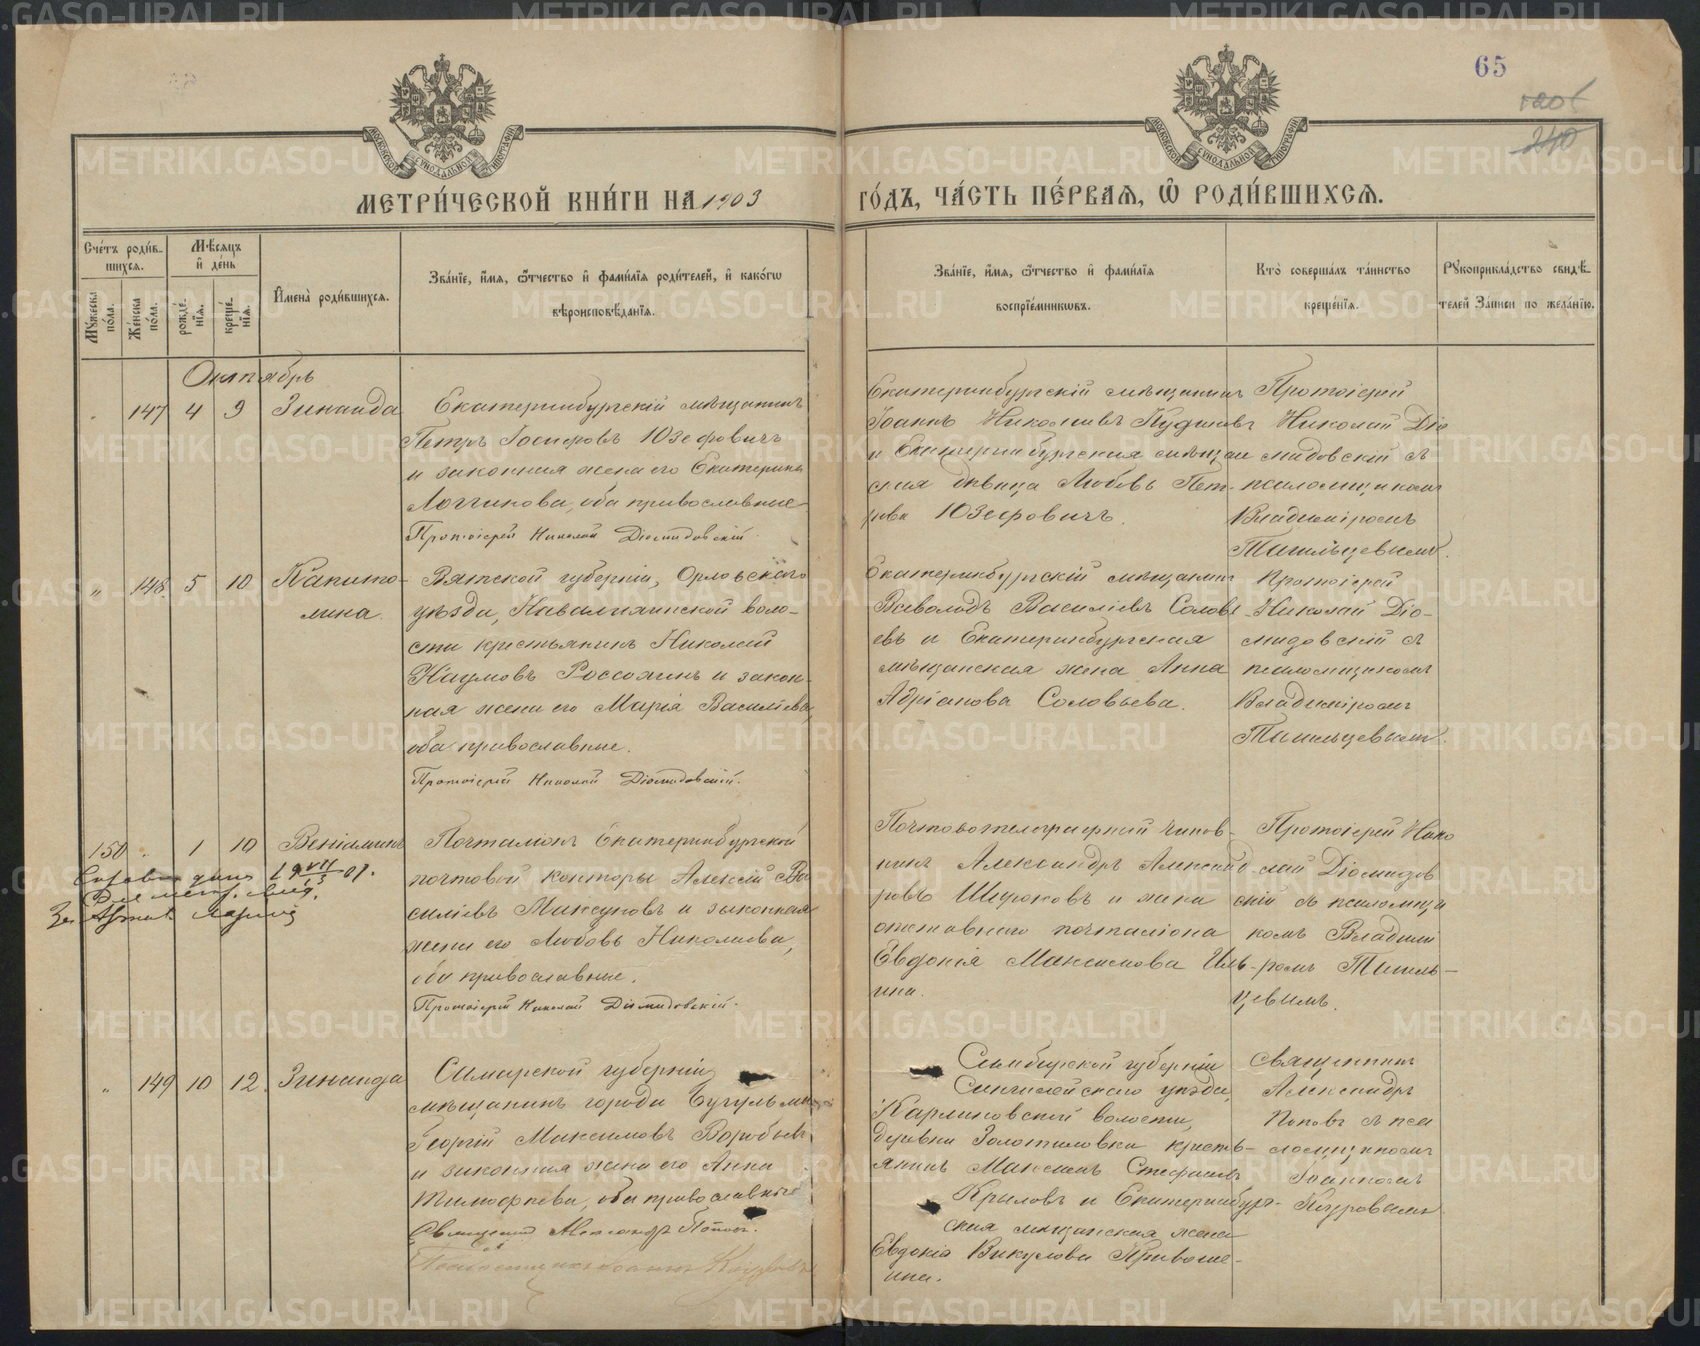 65
240
МЕТРИ́ЧЕСКОЙ КНИ́ГИ НА 1903
ГО́ДЪ, ЧА́СТЬ ПЕ́РВАЯ, Ѿ РОДИ́ВШИХСЯ.
Сче́тъ роди́в-
шихся.
Мꙋ́жеска по́ла.
Же́нска по́ла.
Мѣ́сяцъ
и҆ де́нь
рожде́нїя.
креще́нїя.
И҆мена̀ роди́вшихся.
Зва́нїе, и҆́мя, ѻ҆́тчество и҆ фами́лїя роди́телей, и҆ како́гѡ
вѣроисповѣ́данїя.
Зва́нїе, и҆́мя, ѻ҆́тчество и҆ фами́лїя
воспрїе́мникѡвъ.
Кто̀ соверша́лъ та́инство
креще́нїя.
Рꙋкоприкла́дство свидѣ́-
телей за́писи по жела́нїю.
Октябрь
147 4 9 Зинаида
Екатеринбургскій мѣщанинъ
Петръ Іосифовъ Юзефовичъ
и законная жена его Екатерина
Логгинова, оба православные
Протоіерей Николай Діомидовскій.
Екатеринбургскій мѣщанинъ
Іоаннъ Николаевъ Кудиновъ
и Екатеринбургская мѣщан
ская дѣвица Любовь Пет-
рова Юзефовичъ.
Протоіерей
Николай Діо
мидовскій съ
псаломщикомъ
Владиміромъ
Тигильцевымъ.
" 148. 5 10 Капито-
лина.
Вятской губерніи, Орловскаго
уѣзда, Кавалинской воло-
сти крестьянинъ Николай
Наумовъ Россохинъ и закон-
ная жена его Марія Васильева,
оба православные.
Протоіерей Николай Діомидовскій.
Екатеринбургскій мѣщанинъ
Всеволодъ Василіевъ Соловь
евъ и Екатеринбургская
мѣщанская жена Анна
Адріанова Соловьева.
Протоіерей
Николай Діо-
мидовскій съ
псаломщикомъ
Владиміромъ
Тигильцевымъ.
150 1 10 Веніаминъ
Почталіонъ Екатеринбургской
почтовой конторы Алексій Ва
силіевъ Максуновъ и законная
жена его Любовь Николаева,
оба православные.
Протоіерей Николай Діомидовскій.
Почтовотелеграфный чинов-
никъ Александръ Александ-
ровъ Широковъ и жена
отставнаго почталіона
Евдокія Максимова Иль-
ина.
Протоіерей Нико
лай Діомидов
скій съ псаломщи
комъ Владимі
ромъ Тигиль-
цевымъ.
" 149 10 12. Зинаида
Самарской губерніи
мѣщанинъ города Бугульмы
Георгій Максимовъ Воробьевъ
и законная жена его Анна
Тимофеева, оба православные
Священникъ Александръ Поповъ.
Псаломщикъ Іоаннъ Кауровъ
Симбирской губерніи
Сингилейскаго уѣзда,
Карлинской волости,
деревни Золотиловки кресть-
янинъ Максимъ Стефановъ
Крыловъ и Екатеринбург-
ская мѣщанская жена
Евдокія Викулова Криволе-
ина.
Священникъ
Александръ
Поповъ съ пса
ломщикомъ
Іоанномъ
Кауровымъ.
METRIKI.GASO-URAL.RU